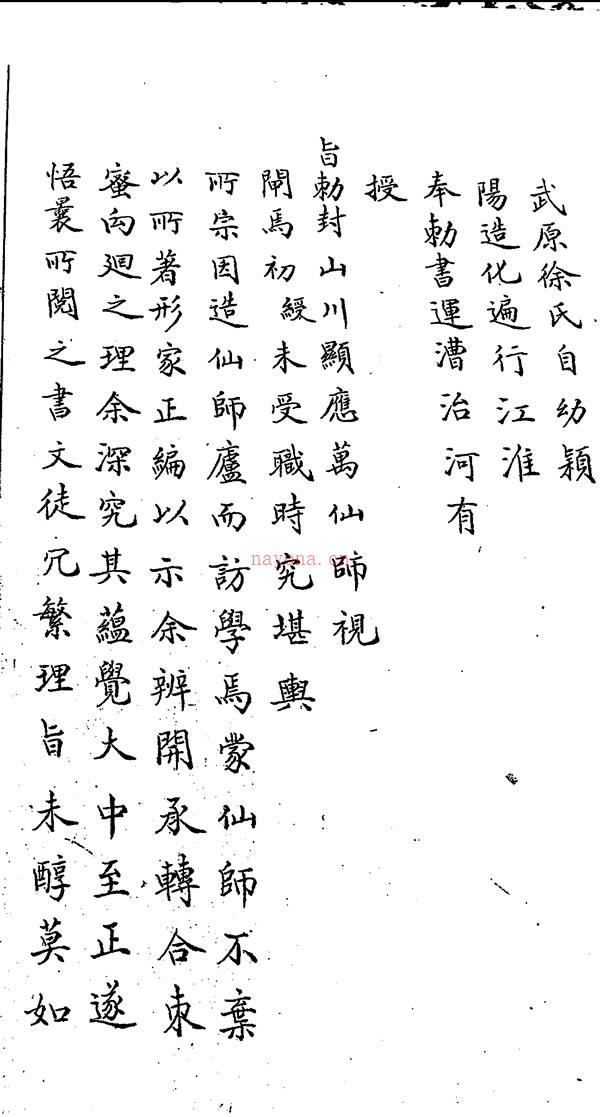 武原徐氏自幼穎
陽造化遍行江淮
奉勅書運漕治河有
授
旨勅封山川顯應萬仙師視
閘焉初綬未受職時究堪輿
所宗因造仙師廬而訪學焉蒙仙師不棄
以所著形家正編以示余辨開承轉合
蜜向廻之理余深究其蘊覺大中至正遂
悟曩所閱之書文徒冗繁理旨未醇莫如
nayona.cn